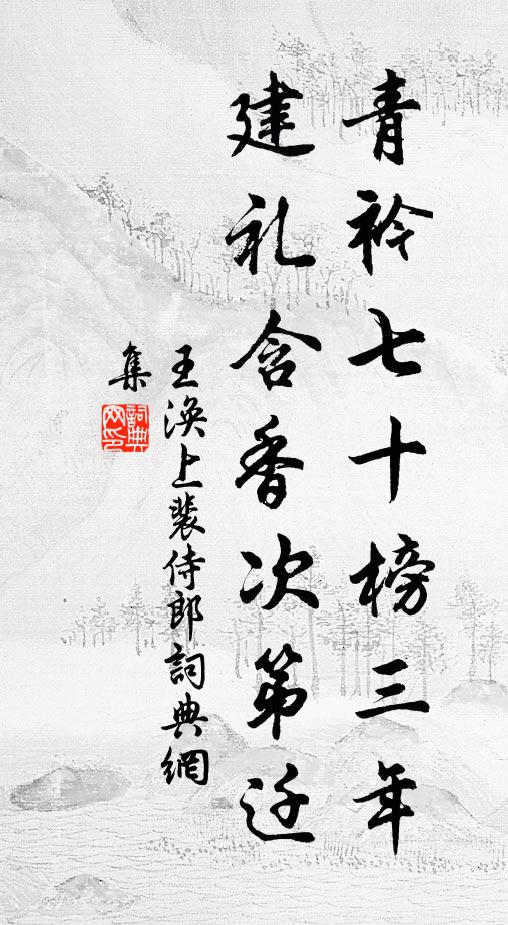 青衿七十榜三年
建礼含香次第迁
王涣上裴侍郎詞典網
集
詞典
网印